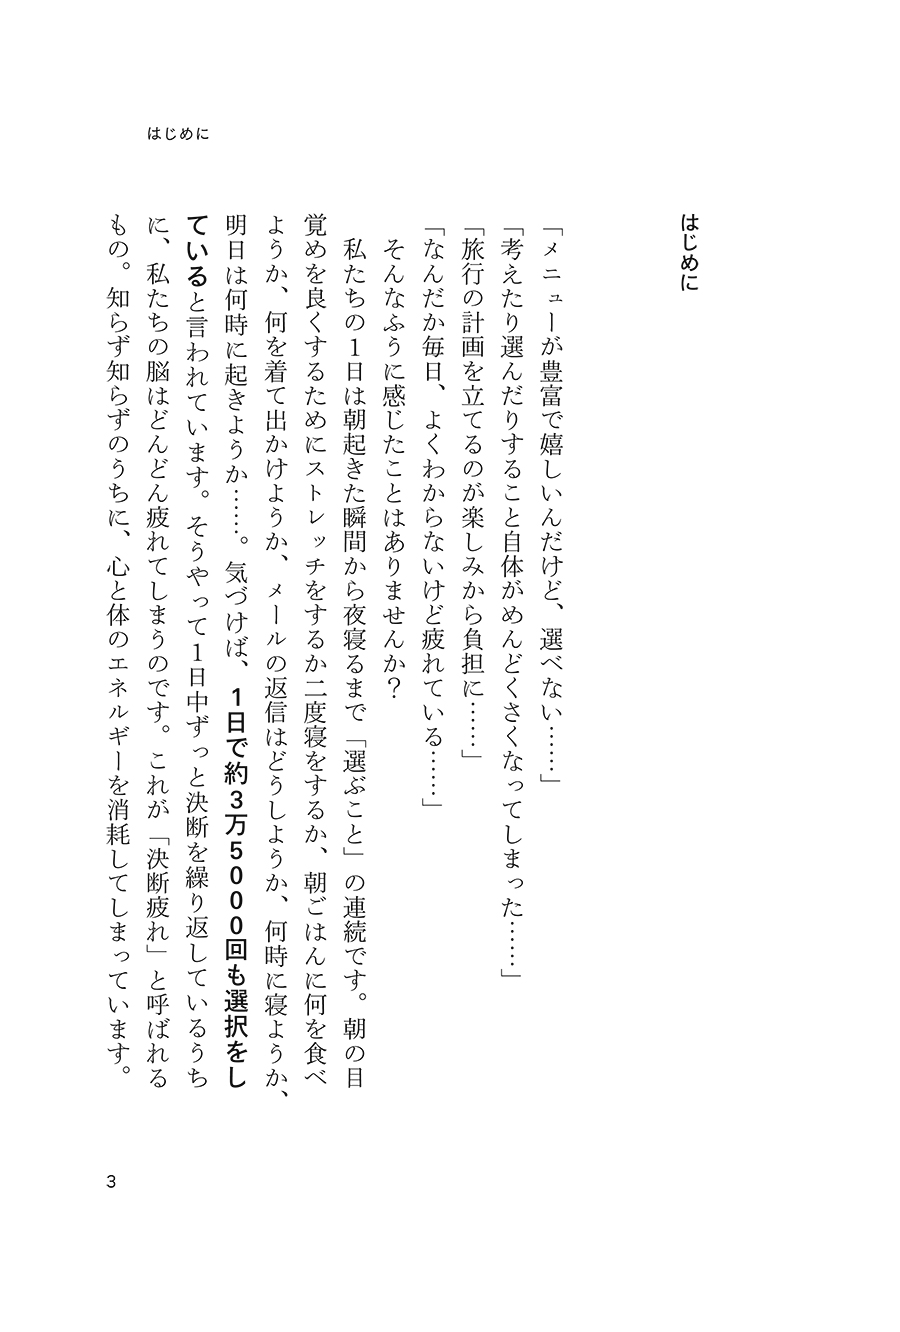 はじめに
はじめに
「メニューが豊富で嬉しいんだけど、選べない……」
「考えたり選んだりすること自体がめんどくさくなってしまった……」
「旅行の計画を立てるのが楽しみから負担に……」
「なんだか毎日、よくわからないけど疲れている……」
そんなふうに感じたことはありませんか？
私たちの１日は朝起きた瞬間から夜寝るまで「選ぶこと」の連続です。朝の目
覚めを良くするためにストレッチをするか二度寝をするか、朝ごはんに何を食べ
ようか、何を着て出かけようか、メールの返信はどうしようか、何時に寝ようか、
明日は何時に起きようか……。気づけば、１日で約３万５０００回も選択をし
ていると言われています。そうやって１日中ずっと決断を繰り返しているうち
に、私たちの脳はどんどん疲れてしまうのです。これが「決断疲れ」と呼ばれる
もの。知らず知らずのうちに、心と体のエネルギーを消耗してしまっています。
3